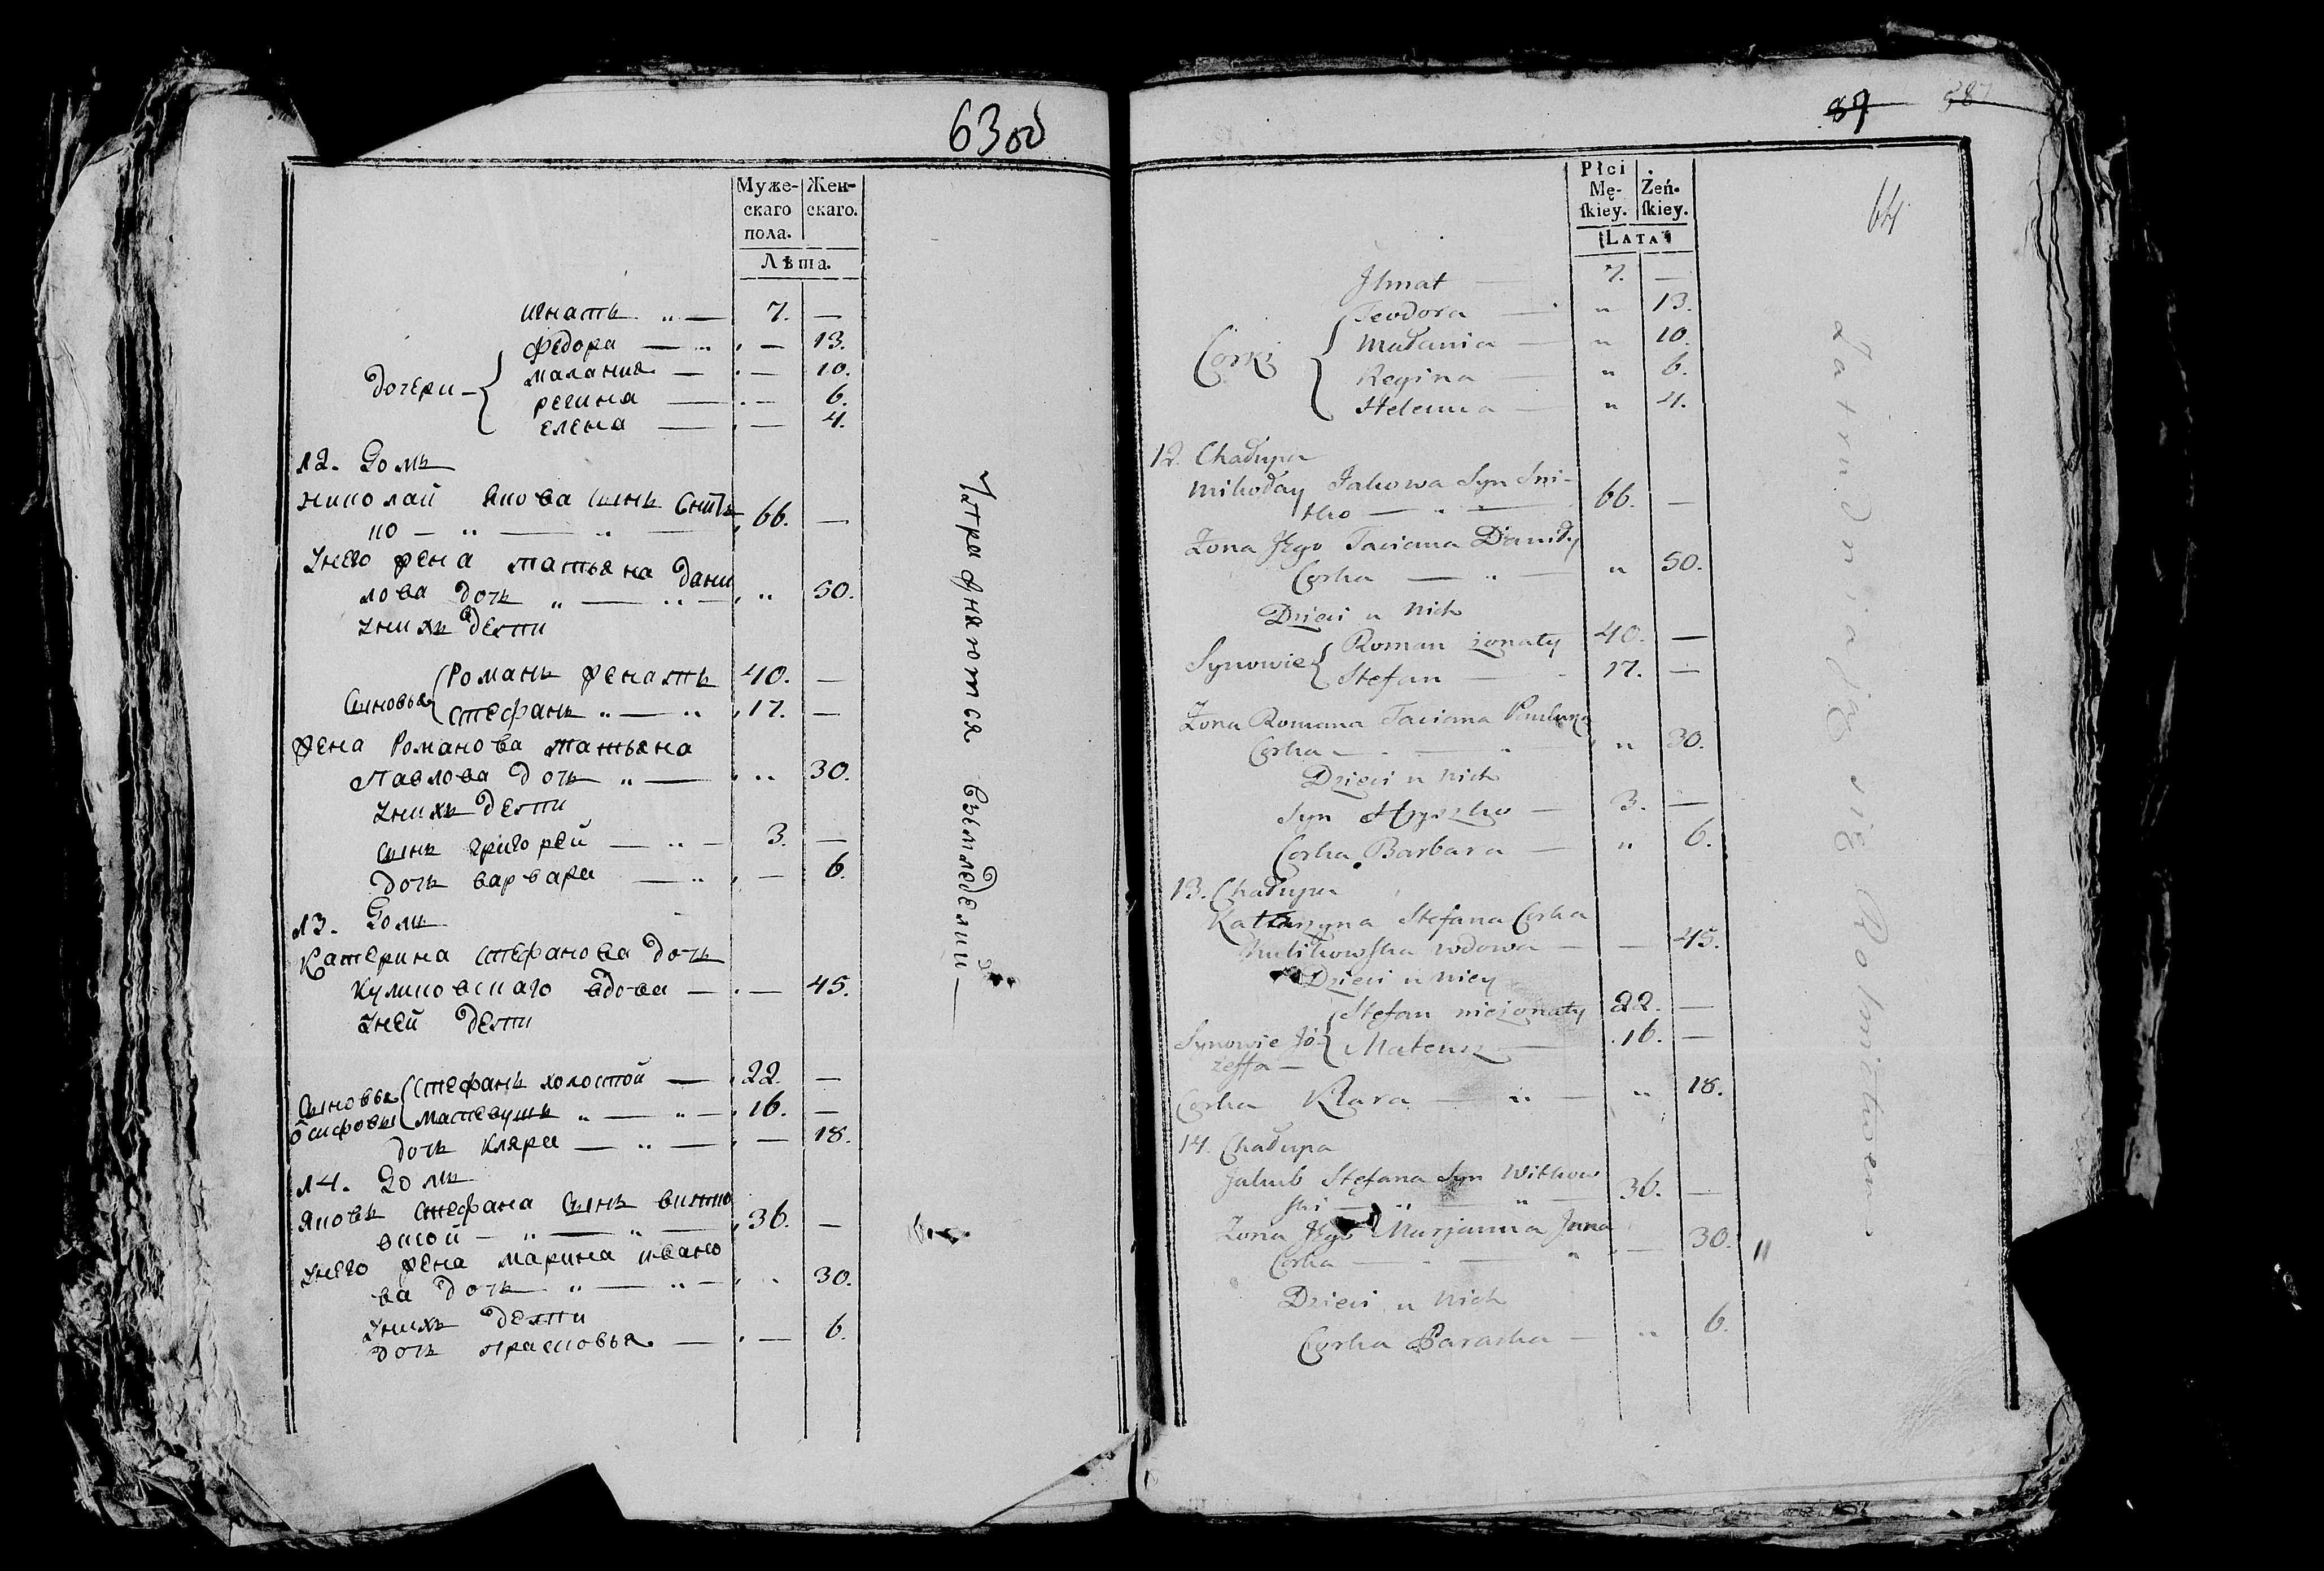 63 об
Муже-
скаго
пола.
Жен-
скаго.
Лѣта.
Игнатъ „ — 7. —
Дочери — Федора — „ — 13.
Малания — — 10.
Регина — — 6.
Елена — — 4.
12. Домъ
Николай Якова сынъ Снит
ко — „ — „ — 66. —
Унего жена Татьяна Дани
лова дочь „ — „ — „ 50.
Унихъ дети
Сыновья Романъ женатъ 40. —
Стефанъ „ — „ 17. —
Жена Романова Татьяна
Павлова дочь „ — „ 30.
Унихъ дети
Сынъ Григорей — „ — 3. —
Дочь Варвара — „ — 6.
13. Домъ
Катерина Стефанова дочь
Куликовскаго вдова — — 45.
Уней дети
Сыновья Стефанъ холостой — 22. —
Осифовы Матеушъ „ — „ — 16. —
дочь Кляра — „ — — 18.
14. Домъ
Яковъ Стефана сынъ Витко
вской — „ — „ — 36. —
Унего жена Марина Ивано
ва дочь „ — „ — „ 30.
Унихъ дети
дочь Прасковья — — 6.
Упражняются въ земледелии —
87
387
64
Płci
Mę-
skiey.
Żeń-
skiey.
Lata
Ihnat — 7. —
Corki Teodora — „ 13.
Małania — „ 10.
Regina — „ 6.
Helenna — „ 4.
12. Chałupa
Mikołay Jakowa Syn Sni-
tko — „ — 66. —
Zona Jego Taciana Daniły
Corka — „ — „ 50.
Dzieci u Nich
Synowie Roman żonaty 40. —
Stefan — 17. —
Zona Romana Taciana Pawłowa
Corka — „ 30.
Dzieci u Nich
Syn Hryszko — 3. —
Corka Barbara — „ 6.
13. Chałupa
Katarzyna Stefana Corka
Kulikowska wdowa — — 45.
Dzieci u Niey
Stefan nieżonaty 22. —
Synowie Jó- Mateusz — 16. —
zeffa —
Corka Klara — „ — „ 18.
14. Chałupa
Jakub Stefana Syn Witkow
ski — „ — „ — 36. —
Zona Jego Marjanna Jana
Corka — — „ — 30.
Dzieci u Nich
Corka Paraska — „ 6.
Zatrudniają się Rolnictwem